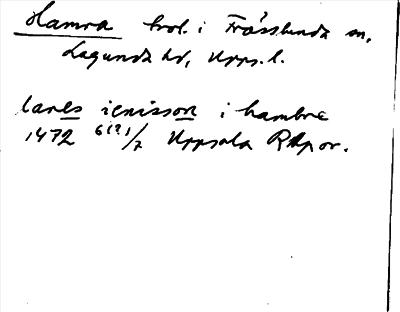 Hamra trol. i Frösslunda sn,
Lagunda hd, Upps. l.
lares ienisson i hambre
1472 6(?)/7 Uppsala RAp or.